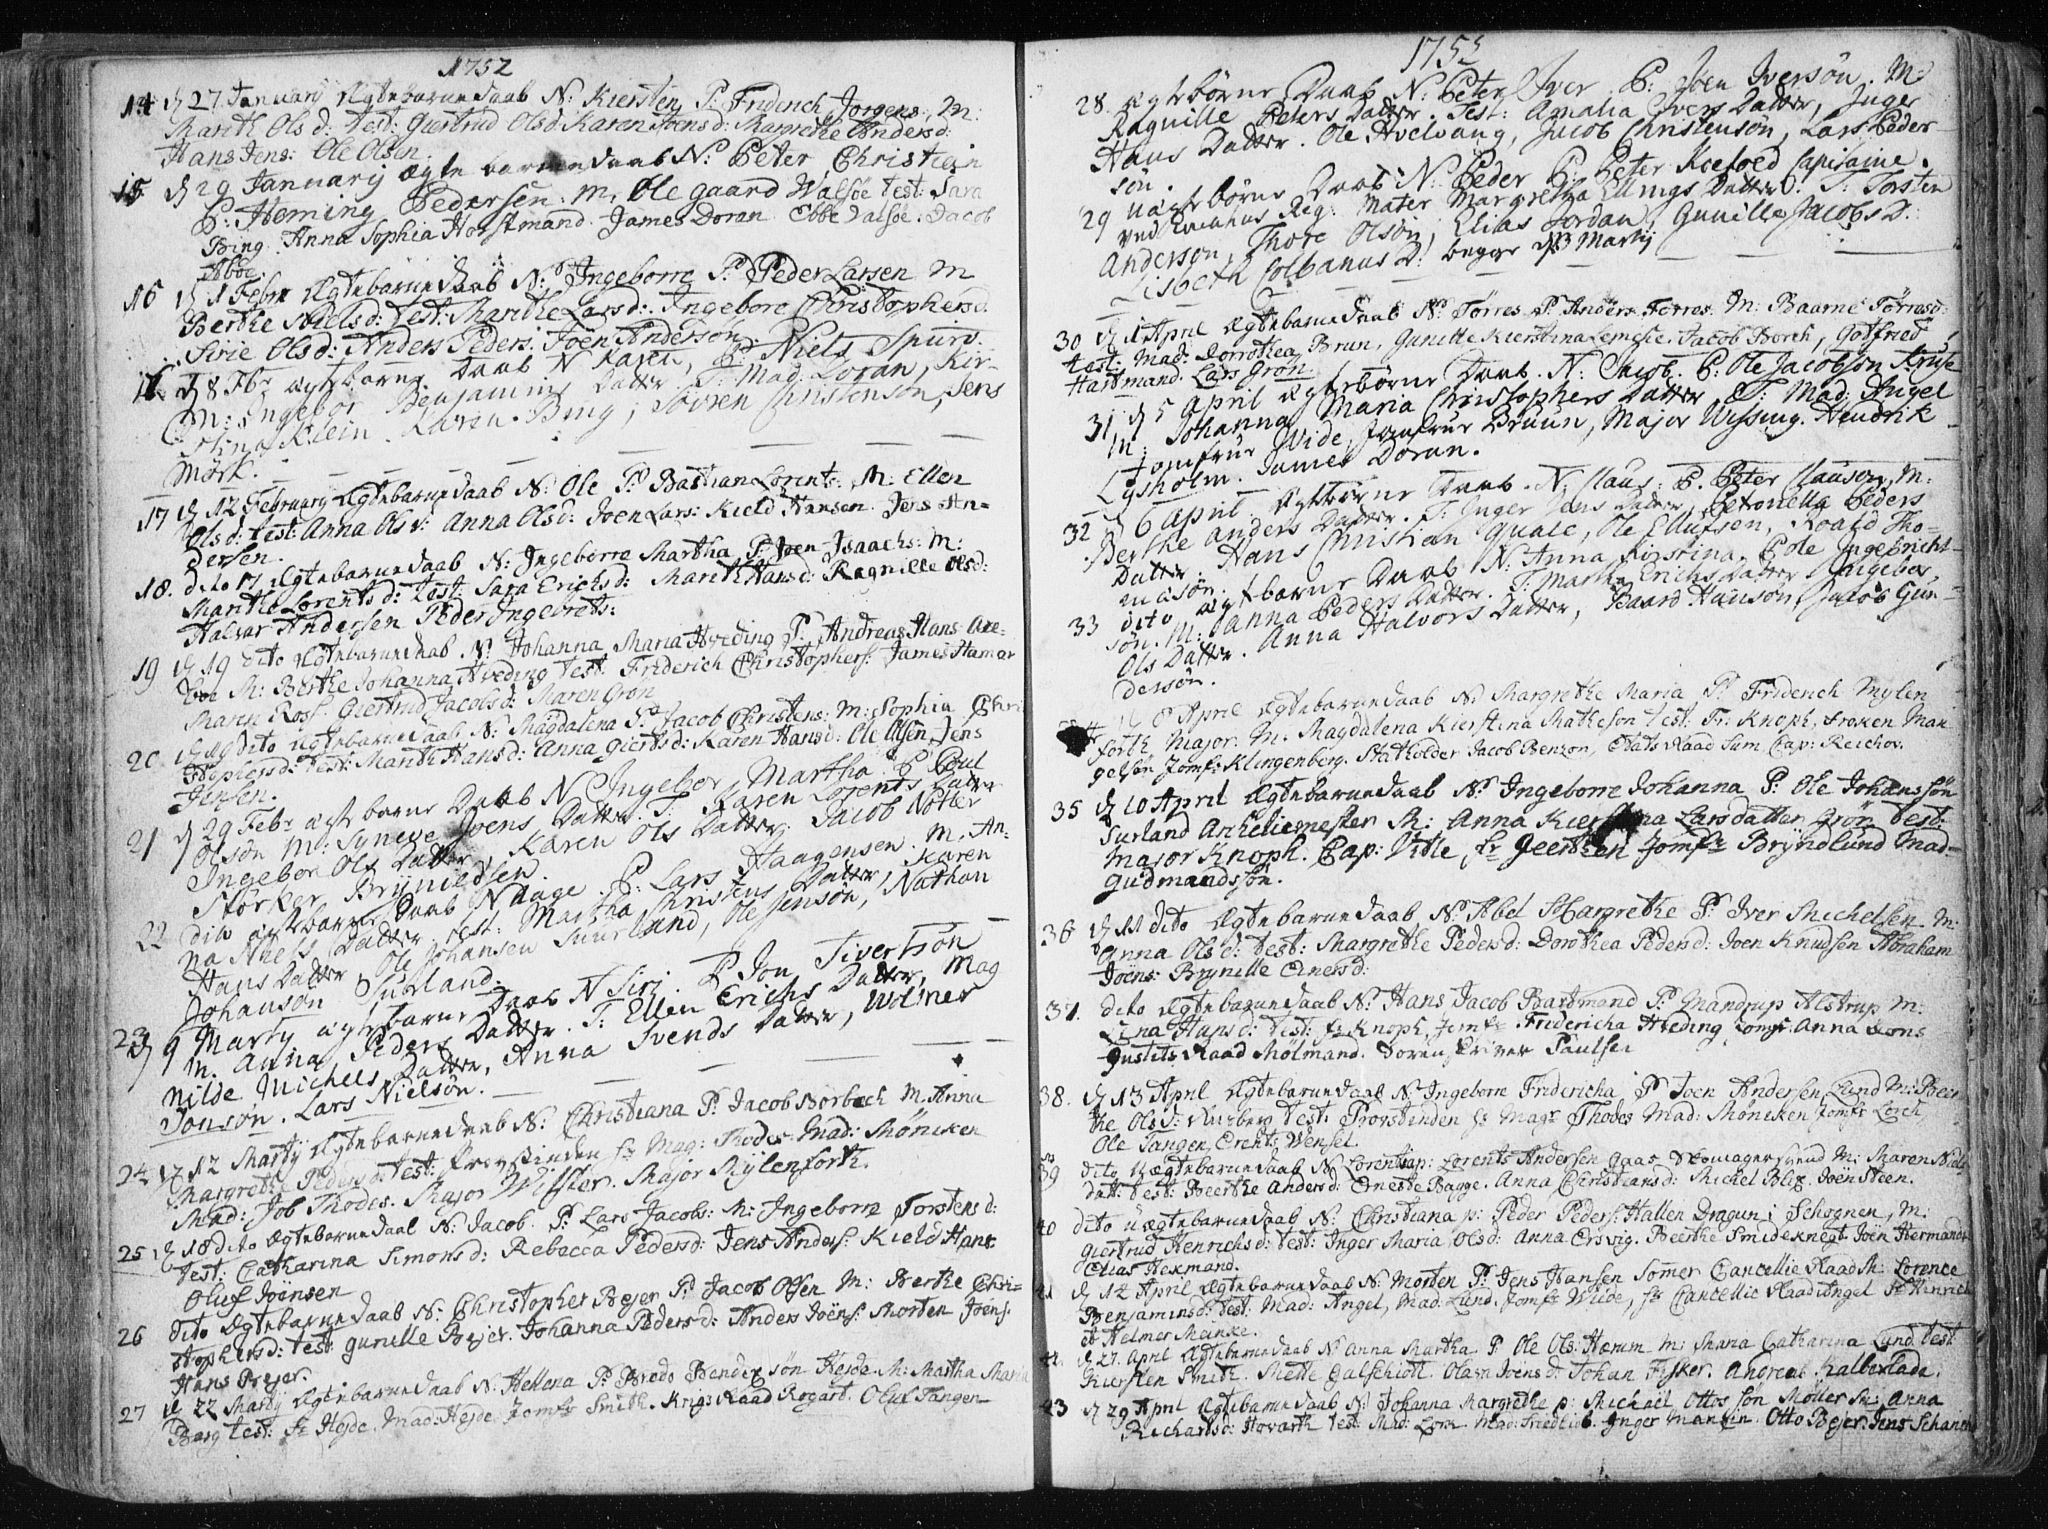 1752
14 d 27. January Ægtebarn daab N: Kiersten P: Friderich Jorgens: M:
Marith Ols d: test: Giertrud Olsd Karen Joensd: Margrethe Andersd:
Hans Jens: Ole Olsen.
15 d 29 January Ægte barn daab N: Peter Christian
P: Heming Pedersen: M: Ole gaard Walsøe test: Sara
Bing. Anna Sophia Horstmand. James Doran. Ebbe Valsøe. Jacob
Aboe
16 d 1 Febr Ægtebarn daab N: Ingeborre P: Peder Larsen M
Berthe Nielsd: test: Marithe Larsd: Ingebore Christophersd.
Sirie Olsd: Anders Peders: Joen Anderson.
16 d 8 Fbr ægtebarne Daab N Karen, P: Niels Spurs.
M: Ingebor Benjamins Datter. T: Mad Loran, Kir-
stina Klein. Karen Bing, Søvren Christenson, Jens
Mørk.
17 d 12 February Ægtebarn daab N: Ole P: Bastian Lorents. M: Ellen
Olsd: test: Anna Olsd: Anna Olsd: Joen Lars: Kield Hansen. Jens An-
dersen.
18. dito 17 Ægtebarn daab N: Ingeborre Martha P: Joen Isaachs: M:
Marithe Lorentsd: test: Sara Erichsd: Marith Hansd: Ragnille Olsd:
Halvar Andersen Peder Ingebrets:
19 d 19 dito Ægtebarn daab N: Johanna Maria Hveding P: Andreas Hans
M: Berthe Johanna Hveding test: Friderich Christophers: James Hamar
Maren Ross. Giertrud Jacobsd: Maren Grøn
20 dito Ægtebarn daab N: Magdalena P: Jacob Christens: M: Sophia Chri
stophersd: test: Marith Hansd: Anna Giertsd: Karen Hansd: Ole Olsen, Jens
Jensen.
21 d 29 Febr ægtebarne Daab N Ingebor Martha P Poul
Olsøn M: Syneve Joens Datter. T. Karen Lorents Datter
Ingebor Ols Datter, Karen Ols Datter, Jacob Notler
Størker Brynildsen.
22 dito ægtebarne Daab N Aage. P. Lars Haagensen. M. An-
na Niels Datter, test: Martha Christens Datter, Karen
Hans Datter Ole Johansen Suurland, Ole Jensøn, Nathan
Johansøn Surland.
23 d 9 Marty ægtebarne Daab N Siri P Jon Sivertson
M. Anna Peders Datter. T. Ellen Erichs Datter, Mag
nilde Michels Datter, Anna Svends Datter, Wilner
Jonsøn. Lars Nielsøn.
24 d 12 Marty Ægtebarn daab N: Christiana P: Jacob Borbech M. Anna
Margrethe Pedersd test: Provstinden fr Mag: Thodes Mad: Møncken
Mad: Job Thodes. Major Wisler. Major Mylenforth.
25 d 18 dito Ægtebarn daab N: Jacob P: Lars Jacobs: M: Ingeborre Torstensd:
test: Catharina Simonsd: Rebecca Pedersd: Jens Anders: Kield Hans:
Oluf Joensen
26 dito Ægtebarn daab N: Christopher Bejer P: Jacob Olsen M: Berthe Chri-
stophersd: test: gunille Bejer. Johanna Pedersd: Anders Joens: Morten Joens:
Hans Bejer.
27 d 22 Marty Ægtebarn daab N: Hellena P: Bredo Bendex søn Hejde M: Martha Maria
Berg test: fr Hejde. Mad: Hejde. Jomfr Smith. Krigs Raad Rogart. Oluf Tangen
1752
28. ægtebørne Daab N: Peter Iver P: Joen Iversøn. M:
Ragnille Peters Datter. Test: Amalia Ivers Datter, Inger
Hans Datter. Ole Hvelvang, Jacob Christensøn, Lars Peder-
søn.
29 uægtebørne Daab N: Peder P: Peter Koefoed Capitaine
ved Reg: Mater Margretha Ellings Datter. T: Torsten
Anderson, Thore Olsøn, Elias Jordan, Gunille Jacobs D:
Lisbeth Colbanus D: begge d 3 Martij
30 d 1 April Ægtebarn daab N: Tørres P: Anders Tørres: M: Baarne Tørresd:
test: Mad: Dorrothea Brun, Gunille Kierstina Lemche. Jacob Borch, Gotfried
Hartmand. Lars Grøn.
31 d 5 April ægtebørne Daab. N: Jacob. P: Ole Jacobsøn Kruse
M: Johanna Maria Christophers Datter T: Mad: Angel
Jomfrue Wide, Jomfrue Bruun, Major Wissing. Hendrik
Lysholm. James Doran.
32 d 6 April. ægtebørne Daab. N: Claus: P. Peter Clauson, M:
Berthe Anders Datter. T: Inger Jens Datter, Petronella Peders
Datter. Hans Christian Quale, Ole Ellufson, Roald Tho-
masøn.
33 dito ægtebarne Daab N: Anna Kirstina. P Ole Ingebricht-
søn. M: Anna Peders Datter. T. Martha Erichs Datter Ingebor,
Ols Datter. Anna Halvors Datter, Baard Hanson, Jacob Gun-
dersøn.
34 d 8 April Ægtebarn daab N: Margrethe Maria P: Friderich Mylen
forth Major. M. Magdalena Kierstina Matheson test: Fr: Knoph, Frøken Man
gelsøn Jomfr Klingenberg. Statholder Jacob Benzon, Etats Raad Sum, Cap: Reichov.
35 d 10 April Ægtebarn daab N: Ingeborre Johanna P: Ole Johansøn
Surland Archeliemester M: Anna Kierstina Larsdatter Grøn test:
Major Knoph. Cap: Vitle, fr Geertsen Jomfr Bryndlund Mad-
Gudmandssøn.
36 d 11 dito Ægtebarn daab N: Abel Margrethe P: Iver Michelsen M:
Anna Olsd: test: Margrethe Pedersd: Dorothea Pedersd: Joen Knudsen Abraham
Joens: Brynille Einersd:
37. dito Ægtebarn daab N: Hans Jacob Bartmand P: Mandrup Alstrup M:
Lena Hansd: test: fr Knoph, Jomfr Fridericha Hveding Jomfr Anna
Justits Raad Mølmand. Soren Paulsen
38. d 13 April Ægtebarn daab N: Ingeborn Fridericha P: Joen Andersen Lund M: Beer
the Olsd: test: Provstinden fr Magr Thodes Mad: Mønicken Jomfr Lorch,
Ole Tangen, Erent Wensel.
39 dito Uægtebarn daab N Lorents p: Lorents Andersen Gaas Skomagersvend M: Maren Niels
datt: test: Beerthe Andersd: Erneste Bagge. Anna Christiansd: Michel Blix. Joen Steen.
40 dito uægtebarn daab N: Christiana p: Peder Peders: Hallen Dragun i Schognen, M:
Giertrud Henrichsd: test: Inger Maria Olsd: Anna Ersvig. Beerthe Smideknegt. Joen Hermands
Elias Hexmand.
41 d 12 April Ægtebarn daab N: Morten P: Jens Hansen Sommer Cancellie Raad M: Lorence
Benjaminsd: test: Mad: Angel, Mad: Lund. Jomfr Wilde, fr Cancellie Raad Angel Sr Hinrich
et Helmer Meinke.
42. d 27. April Ægtebarn daab N: Anna Martha P: Ole Ols: Hæmm M: Maria Catharina Lund test
Kiersten Smith. Mette Galschiøth. Olava Joensd: Johan Fisker. Andreas Kalberlada.
43 d 29 April Ægtebarn daab N: Johanna Margrethe p: Michael Ottos søn Møller M: Anna
Richardsd: Horvarth test: Mad: Lorck Mad: Friedlieb. Inger Hansen. Otto Bejer. Jens Schanche